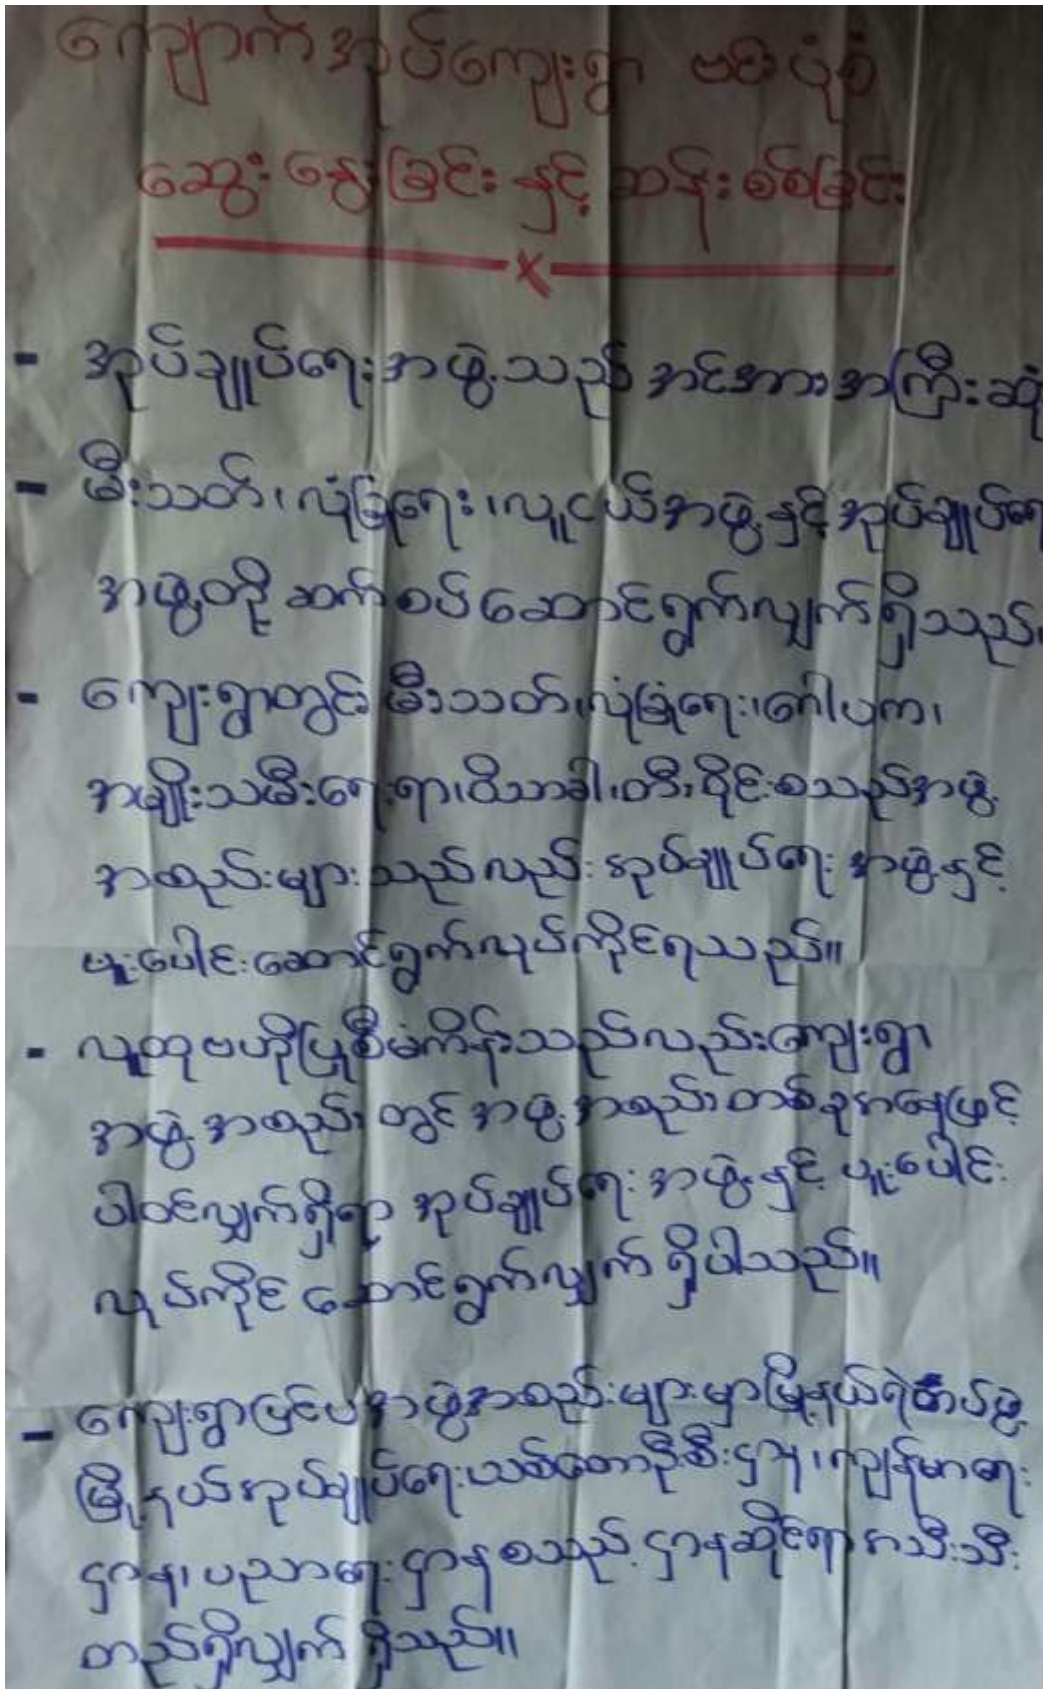 ကျောက်အုပ်ကျေးရွာ ဗင်းပုံစံ
ဆွေးနွေးခြင်း နှင့် ဆန်းစစ်ခြင်း
- အုပ်ချုပ်ရေးအဖွဲ့သည် အင်အားအကြီးဆုံ
- မီးသတ်၊ လုံခြုံရေး၊ လူငယ်အဖွဲ့နှင့် အုပ်ချုပ်ရေ
အဖွဲ့တို့ ဆက်စပ်ဆောင်ရွက်လျှက်ရှိသည်။
- ကျေးရွာတွင် မီးသတ်၊ လုံခြုံရေး၊ ဂေါပက၊
အမျိုးသမီးရေးရာ၊ ဝိသာခါ၊ တီးဝိုင်းစသည်အဖွဲ့
အစည်းများသည်လည်း အုပ်ချုပ်ရေး အဖွဲ့နှင့်
ပူးပေါင်းဆောင်ရွက်လုပ်ကိုင်ရသည်။
- လူထုဗဟိုပြုစီမံကိန်းသည်လည်းကျေးရွာ
အဖွဲ့အစည်းတွင် အဖွဲ့အစည်းတစ်ခုအနေဖြင့်
ပါဝင်လျှက်ရှိရာ အုပ်ချုပ်ရေး အဖွဲ့နှင့် ပူးပေါင်း
လုပ်ကိုင် ဆောင်ရွက်လျှက် ရှိပါသည်။
- ကျေးရွာပြင်ပအဖွဲ့အစည်းများမှာမြို့နယ်ရဲတပ်ဖွဲ့
မြို့နယ်အုပ်ချုပ်ရေး၊ သစ်တောဦးစီးဌာန၊ ကျန်းမာရေး
ဌာန၊ ပညာရေးဌာန စသည့် ဌာနဆိုင်ရာ အသီးသီး
တည်ရှိလျှက် ရှိသည်။